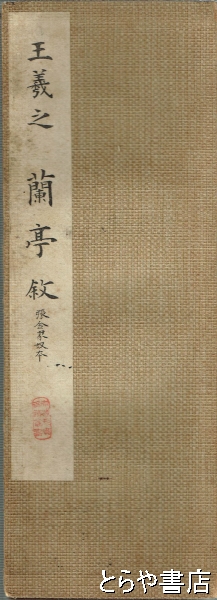 王羲之 蘭亭敘
張金界奴本
とらや書店